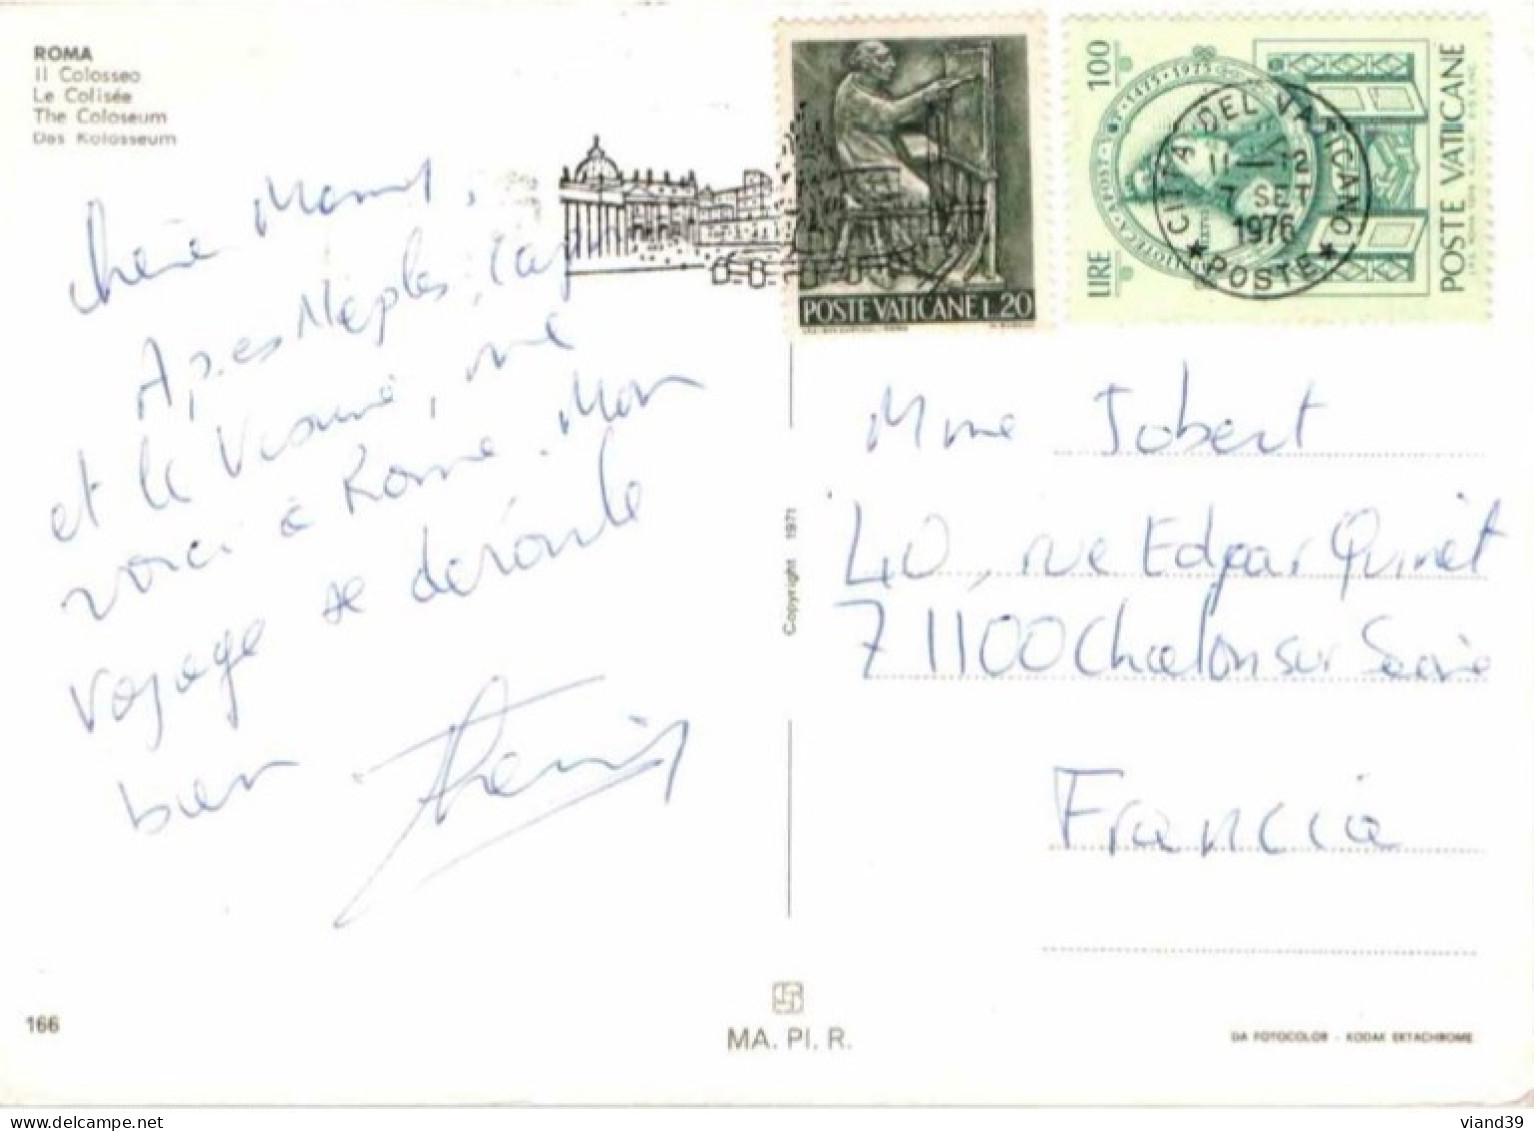 ROMA
Il Colosseo
Le Colisée
The Coloseum
Das Kolosseum
Chère Mamy,
Après Naples, Capri
et le Vésuve, me
voici à Rome. Mon
voyage se déroule
bien
POSTE VATICANE L.20
LIRE 100
POSTE VATICANE
CITTA' DEL VATICANO
7 SET
1976
POSTE
Mme Jobert
40, rue Edgar Quinet
71100 Chalon sur Saône
Francia
Copyright 1971
166
MA. PI. R.
DA FOTOCOLOR - KODAK EKTACHROME
viand39